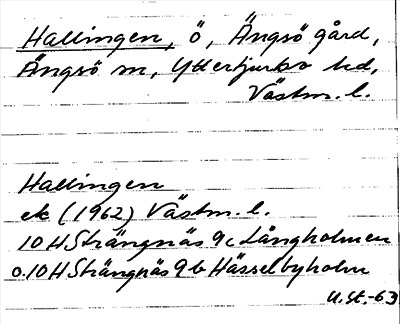 Hallingen, ö, Ängsö gård,
Ängsö sn, Yttertjurbo hd,
Västm. l.
Hallingen
ek (1962) Västm. l.
10 H Strängnäs 9 c Långholmen
o. 10 H Strängnäs 9 b Hässelbyholm
U.St.-63